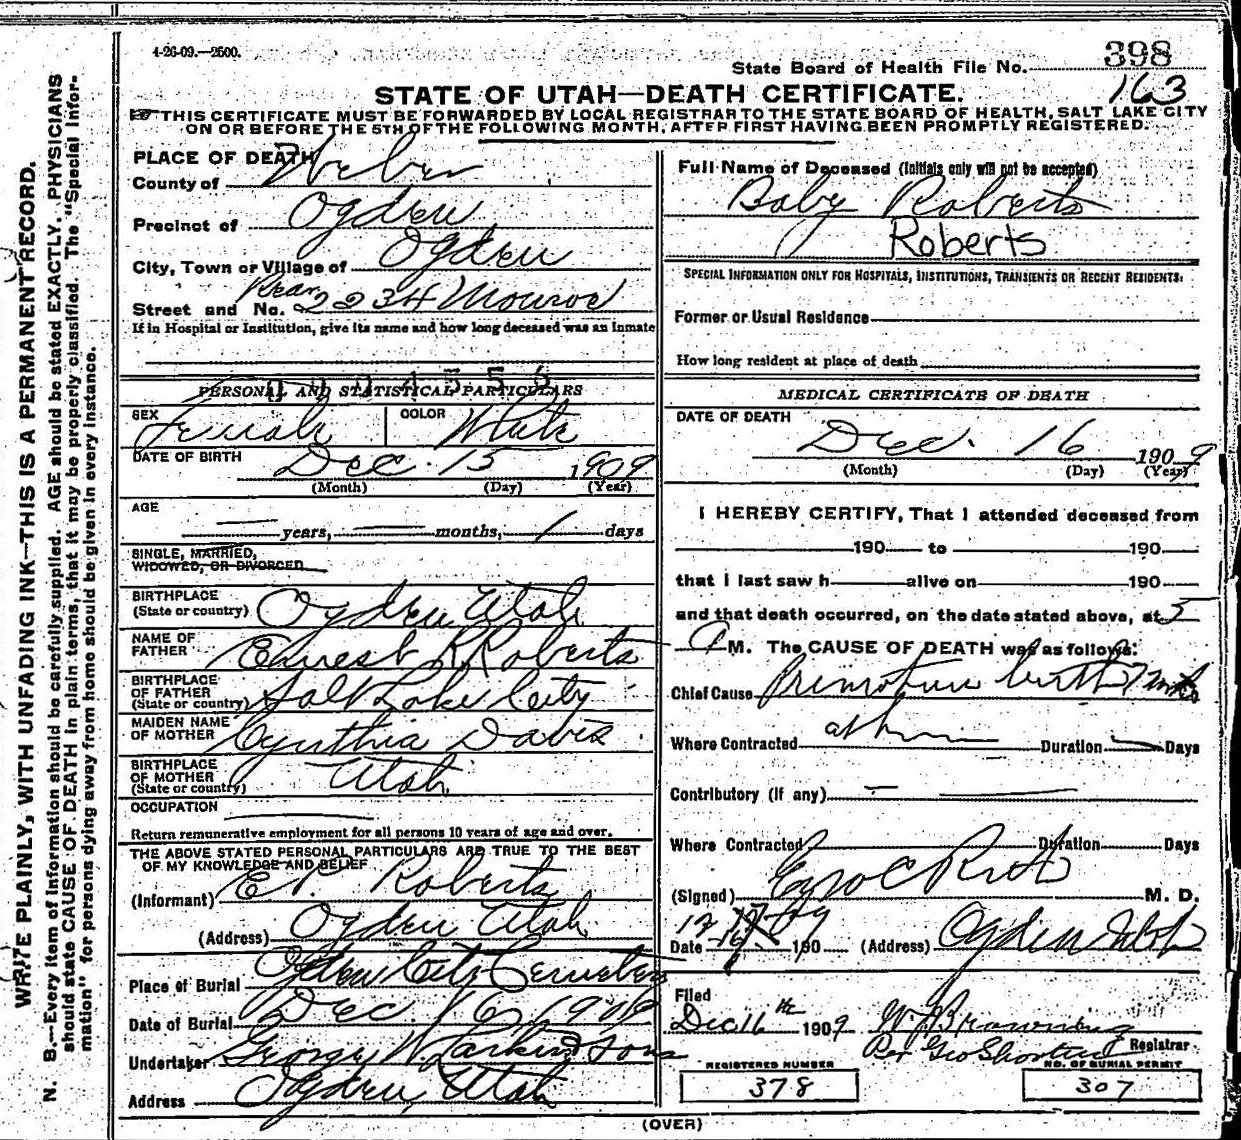 4-26-09.—2500.
State Board of Health File No. 398
163
STATE OF UTAH—DEATH CERTIFICATE.
THIS CERTIFICATE MUST BE FORWARDED BY LOCAL REGISTRAR TO THE STATE BOARD OF HEALTH, SALT LAKE CITY
ON OR BEFORE THE 5TH OF THE FOLLOWING MONTH, AFTER FIRST HAVING BEEN PROMPTLY REGISTERED.
WRITE PLAINLY, WITH UNFADING INK—THIS IS A PERMANENT RECORD.
N. B.—Every item of information should be carefully supplied. AGE should be stated EXACTLY. PHYSICIANS
should state CAUSE OF DEATH in plain terms, that it may be properly classified. The "Special Infor-
mation" for persons dying away from home should be given in every instance.
PLACE OF DEATH
County of Weber
Precinct of Ogden
City, Town or Village of Ogden
Street and No. Rear 2234 Monroe
If in Hospital or Institution, give its name and how long deceased was an inmate
PERSONAL AND STATISTICAL PARTICULARS
SEX Female COLOR White
DATE OF BIRTH Dec. 15 1909
(Month) (Day) (Year)
AGE
years, months, 1 days
SINGLE, MARRIED,
WIDOWED, OR DIVORCED
BIRTHPLACE
(State or country) Ogden Utah
NAME OF
FATHER Ernest R. Roberts
BIRTHPLACE
OF FATHER
(State or country) Salt Lake City
MAIDEN NAME
OF MOTHER Cynthia Davis
BIRTHPLACE
OF MOTHER
(State or country) Utah
OCCUPATION
Return remunerative employment for all persons 10 years of age and over.
THE ABOVE STATED PERSONAL PARTICULARS ARE TRUE TO THE BEST
OF MY KNOWLEDGE AND BELIEF
(Informant) E R. Roberts
(Address) Ogden Utah
Place of Burial Ogden City Cemetery
Date of Burial Dec. 16, 1909
Undertaker George W. Larkin & Sons
Address Ogden, Utah
Full Name of Deceased (Initials only will not be accepted)
Baby Roberts
Roberts
SPECIAL INFORMATION ONLY FOR HOSPITALS, INSTITUTIONS, TRANSIENTS OR RECENT RESIDENTS:
Former or Usual Residence
How long resident at place of death
MEDICAL CERTIFICATE OF DEATH
DATE OF DEATH
Dec. 16 1909
(Month) (Day) (Year)
I HEREBY CERTIFY, That I attended deceased from
190 to 190
that I last saw h alive on 190
and that death occurred, on the date stated above, at 5
M. The CAUSE OF DEATH was as follows:
Chief Cause Premature birth 7
Where Contracted Duration Days
Contributory (if any)
Where Contracted Duration Days
(Signed) Ezra C Rich M. D.
Date 190 (Address) Ogden Utah
Filed
Dec 16th 1909 W J Browning
Registrar
Per Geo Shorten
REGISTERED NUMBER
378
NO. OF BURIAL PERMIT
307
(OVER)